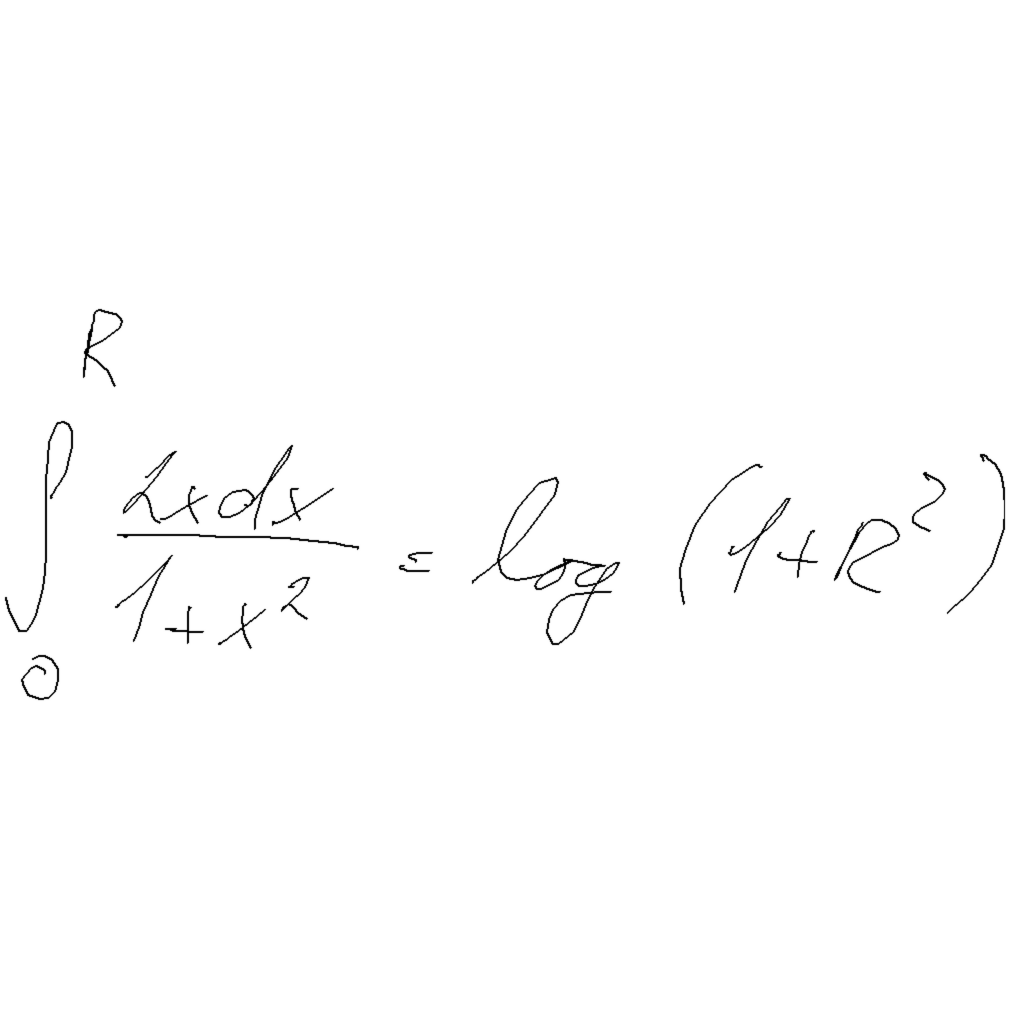 \int_{0}^{R} \frac{2x dx}{1+x^2} = \log (1+R^2)